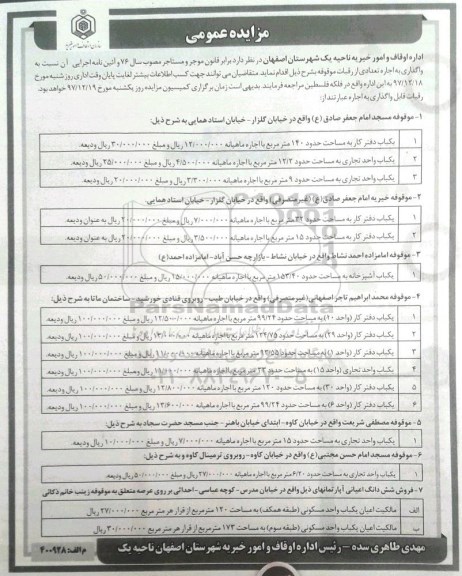 مزایده عمومی
اداره اوقاف و امور خیریه ناحیه یک شهرستان اصفهان در نظر دارد برابر قانون موجر و مستاجر مصوب سال ۷۶ و آئین نامه اجرایی آن نسبت به
واگذاری به اجاره تعدادی از رقبات موقوفه بشرح ذیل اقدام نماید. متقاضیان می توانند جهت کسب اطلاعات بیشتر لغایت پایان وقت اداری روز شنبه مورخ
۹۷/۱۲/۱۸ به این اداره واقع در فلکه فلسطین مراجعه فرمایند. بدیهی است زمان برگزاری کمیسیون مزایده روز یکشنبه مورخ ۹۷/۱۲/۱۹ خواهد بود.
رقبات قابل واگذاری به اجاره عبارتند از:
۱- موقوفه مسجد امام جعفر صادق (ع) واقع در خیابان گلزار - خیابان استاد همایی به شرح ذیل:
۱ یکباب دفتر کار به مساحت حدود ۱۴۰ متر مربع با اجاره ماهیانه ۱۲/۰۰۰/۰۰۰ ریال و مبلغ ۳۰۰/۰۰۰/۰۰۰ ریال ودیعه.
۲ یکباب واحد تجاری به مساحت حدود ۱۲/۲ متر مربع با اجاره ماهیانه ۴/۵۰۰/۰۰۰ ریال و مبلغ ۲۵/۰۰۰/۰۰۰ ریال ودیعه.
۳ یکباب واحد تجاری به مساحت حدود ۹ متر مربع با اجاره ماهیانه ۳/۳۰۰/۰۰۰ ریال و مبلغ ۲۰/۰۰۰/۰۰۰ ریال ودیعه.
۲- موقوفه خیریه امام جعفر صادق (ع) (غیر متصرفی) واقع در خیابان گلزار - خیابان استاد همایی.
۱ یکباب دفتر کار به مساحت حدود ۳۲ متر مربع با اجاره ماهیانه ۷/۰۰۰/۰۰۰ ریال و مبلغ ۲۰/۰۰۰/۰۰۰ ریال به عنوان ودیعه.
۲ یکباب دفتر کار به مساحت حدود ۱۵ متر مربع با اجاره ماهیانه ۳/۵۰۰/۰۰۰ ریال و مبلغ ۲۰/۰۰۰/۰۰۰ ریال به عنوان ودیعه.
۳- موقوفه امامزاده احمد نشاط واقع در خیابان نشاط - بازارچه حسن آباد - امامزاده احمد (ع)
۱ یکباب آشپزخانه به مساحت حدود ۱۵۳/۴۰ متر مربع با اجاره ماهیانه ۱۵/۰۰۰/۰۰۰ ریال و مبلغ ۵۰/۰۰۰/۰۰۰ ریال ودیعه.
۴- موقوفه محمد ابراهیم تاجر اصفهانی (غیر متصرفی) واقع در خیابان طیب - روبروی قنادی خورشید - ساختمان مانا به شرح ذیل:
۱ یکباب دفتر کار (واحد ۱۰) به مساحت حدود ۹۹/۲۴ متر مربع با اجاره ماهیانه ۱۲/۵۰۰/۰۰۰ ریال و مبلغ ۱۰۰/۰۰۰/۰۰۰ ریال ودیعه.
۲ یکباب دفتر کار (واحد ۲۹) به مساحت حدود ۱۳۴/۷۵ متر مربع با اجاره ماهیانه ریال و مبلغ ۱۰۰/۰۰۰/۰۰۰ ریال ودیعه.
۳ یکباب دفتر کار (واحد ۱) به مساحت حدود ۹۲/۵۵ متر مربع با اجاره ماهیانه ریال و مبلغ ۱۰۰/۰۰۰/۰۰۰ ریال ودیعه.
۴ یکباب واحد تجاری (واحد ۱۵) به مساحت حدود ۲۳ متر مربع با اجاره ماهیانه ریال و مبلغ ۱۰۰/۰۰۰/۰۰۰ ریال ودیعه.
۵ یکباب دفتر کار (واحد ۳۰) به مساحت حدود ۱۲۰ متر مربع با اجاره ماهیانه ۱۲/۸۰۰/۰۰۰ ریال و مبلغ ۱۰۰/۰۰۰/۰۰۰ ریال ودیعه.
۶ یکباب دفتر کار (واحد ۶) به مساحت حدود ۹۹/۲۴ متر مربع با اجاره ماهیانه ۱۳/۶۰۰/۰۰۰ ریال و مبلغ ۱۰۰/۰۰۰/۰۰۰ ریال ودیعه.
۵- موقوفه مصطفی شریعت واقع در خیابان کاوه - ابتدای خیابان باهنر - جنب مسجد حضرت سجاد به شرح ذیل:
۱ یکباب واحد تجاری به مساحت حدود ۱۵ متر مربع با اجاره ماهیانه ۷/۰۰۰/۰۰۰ ریال و مبلغ ۱۰/۰۰۰/۰۰۰ ریال ودیعه.
۶- موقوفه مسجد امام حسن مجتبی (ع) واقع در خیابان کاوه - روبروی ترمینال کاوه و به شرح ذیل:
۱ یکباب واحد تجاری به مساحت حدود ۶/۲۰ متر مربع با اجاره ماهیانه ۲۷/۰۰۰/۰۰۰ ریال و مبلغ ۵۰/۰۰۰/۰۰۰ ریال ودیعه.
۷- فروش شش دانگ اعیانی آپارتمانهای ذیل واقع در خیابان مدرس - کوچه عباسی - احداثی بر روی عرصه متعلق به موقوفه زینب خانم ذکائی
الف مالکیت اعیان یکباب واحد مسکونی (طبقه همکف) به مساحت ۱۲۰ مترمربع از قرار هر متر مربع ۲۷/۰۰۰/۰۰۰ ریال
ب مالکیت اعیان یکباب واحد مسکونی (طبقه سوم) به مساحت ۱۷۳ مترمربع از قرار هر متر مربع ۳۰/۰۰۰/۰۰۰ ریال
مهدی طاهری سده - رئیس اداره اوقاف و امور خیریه شهرستان اصفهان ناحیه یک
م الف: ۴۰۰۹۲۸
ParsNamadData